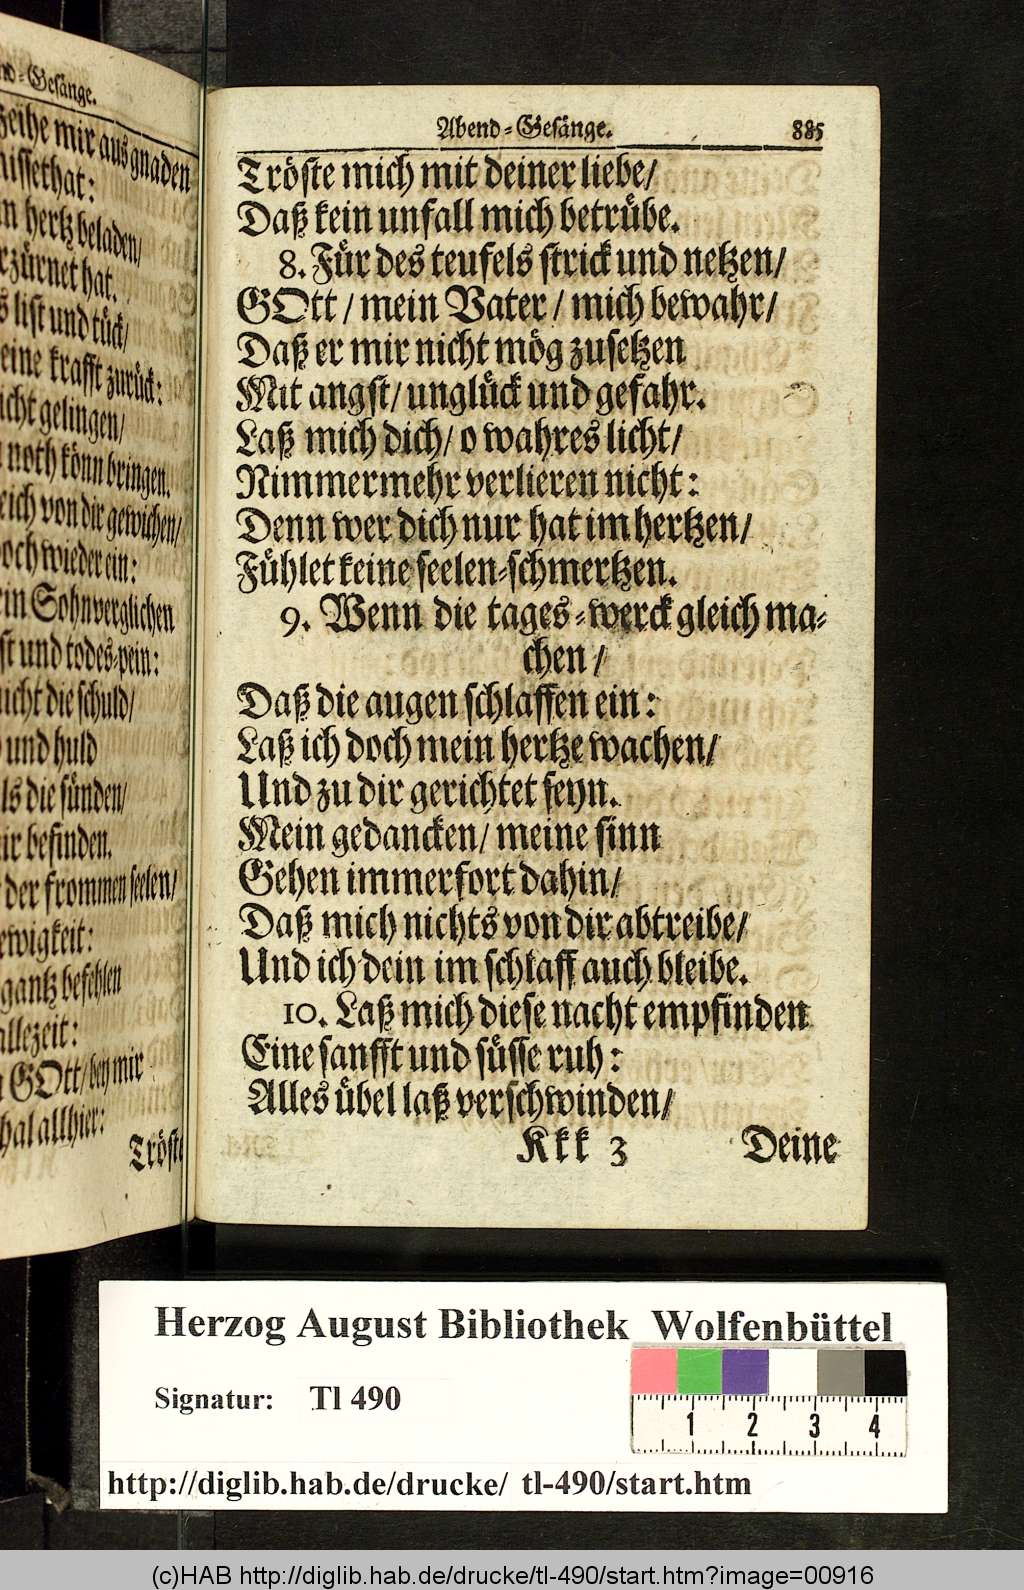 nd-Gesänge.
zeihe mir aus gnaden
issethat:
n hertz beladen/
rzürnet hat.
s list und tück/
eine krafft zurück:
icht gelingen/
noth könn bringen.
eich von dir gewichen/
och wieder ein:
in Sohn verglichen
st und todes-pein:
nicht die schuld/
und huld
ls die sünden/
ir befinden.
der frommen seelen/
ewigkeit:
gantz befehlen
allezeit:
GOtt/ bey mir
hal allhier:
Tröste
Abend-Gesänge. 885
Tröste mich mit deiner liebe/
Daß kein unfall mich betrübe.
8. Für des teufels strick und netzen/
GOtt/ mein Vater/ mich bewahr/
Daß er mir nicht mög zusetzen
Mit angst/ unglück und gefahr.
Laß mich dich/ o wahres licht/
Nimmermehr verlieren nicht:
Denn wer dich nur hat im hertzen/
Fühlet keine seelen-schmertzen.
9. Wenn die tages-werck gleich ma-
chen/
Daß die augen schlaffen ein:
Laß ich doch mein hertze wachen/
Und zu dir gerichtet seyn.
Mein gedancken/ meine sinn
Gehen immerfort dahin/
Daß mich nichts von dir abtreibe/
Und ich dein im schlaff auch bleibe.
10. Laß mich diese nacht empfinden
Eine sanfft und süsse ruh:
Alles übel laß verschwinden/
Kkk 3 Deine
Herzog August Bibliothek Wolfenbüttel
Signatur: Tl 490
1 2 3 4
http://diglib.hab.de/drucke/ tl-490/start.htm
(c)HAB http://diglib.hab.de/drucke/tl-490/start.htm?image=00916